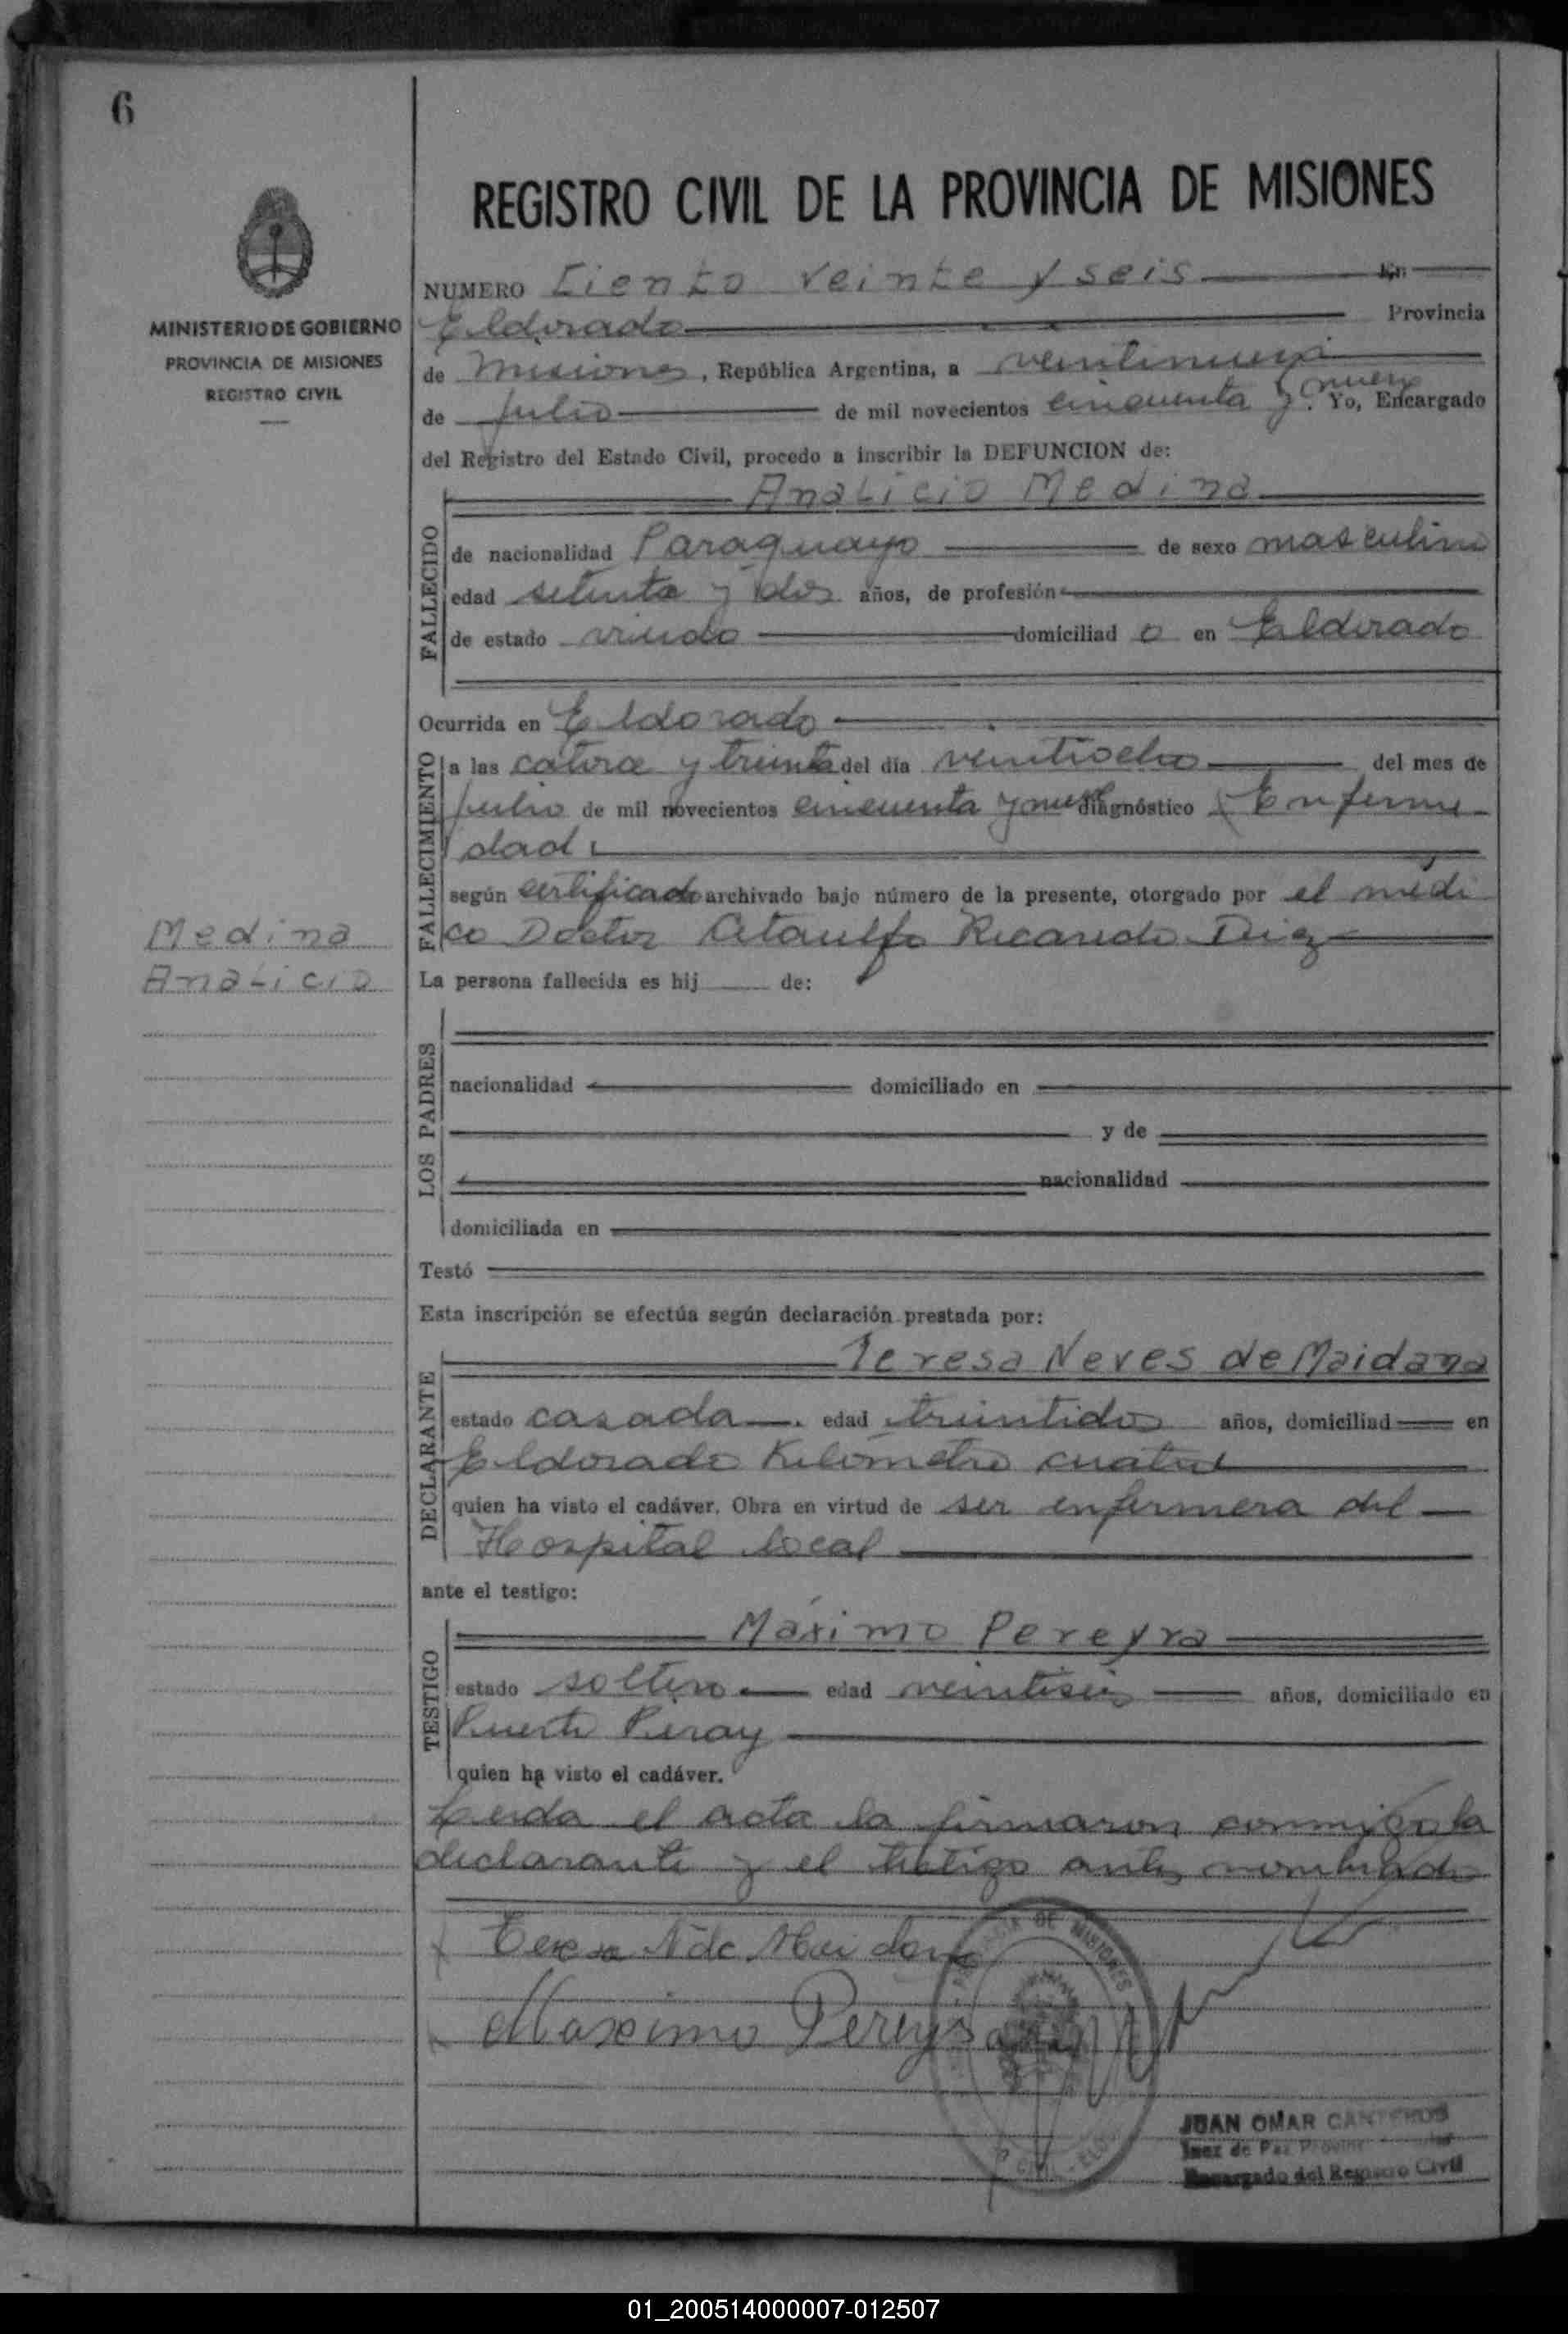 6
REGISTRO CIVIL DE LA PROVINCIA DE MISIONES
MINISTERIO DE GOBIERNO
PROVINCIA DE MISIONES
REGISTRO CIVIL
NUMERO Ciento Veinte y seis En
Eldorado Provincia
de Misiones, República Argentina, a veintinueve
de Julio de mil novecientos cincuenta y nueve. Yo, Encargado
del Registro del Estado Civil, procedo a inscribir la DEFUNCION de:
Analicio Medina
FALLECIDO
de nacionalidad Paraguayo de sexo masculino
edad setenta y dos años, de profesión
de estado viudo domiciliad o en Eldorado
Ocurrida en Eldorado
FALLECIMIENTO
a las catorce y treinta del día veintiocho del mes de
Julio de mil novecientos cincuenta y nueve diagnóstico Enferme
dad
según certificado archivado bajo número de la presente, otorgado por el médi
co Doctor Ataulfo Ricardo Diaz
Medina
Analicio
La persona fallecida es hij de:
LOS PADRES
nacionalidad domiciliado en
y de
nacionalidad
domiciliada en
Testó
Esta inscripción se efectúa según declaración prestada por:
Teresa Neves de Maidana
DECLARANTE
estado casada. edad treintidos años, domiciliad en
Eldorado Kilómetro cuatro
quien ha visto el cadáver. Obra en virtud de ser enfermera del
Hospital local
ante el testigo:
Máximo Pereyra
TESTIGO
estado soltero edad veintiseis años, domiciliado en
Puerto Piray
quien ha visto el cadáver.
Leida el acta la firmaron conmigo la
declarante y el testigo antes nombrado
Teresa N de Maidana
Maximo Pereyra
DE MISIONES
CIVIL - ELD
JUAN OMAR CANTEROS
Juez de Paz
Encargado del Registro Civil
01_200514000007-012507